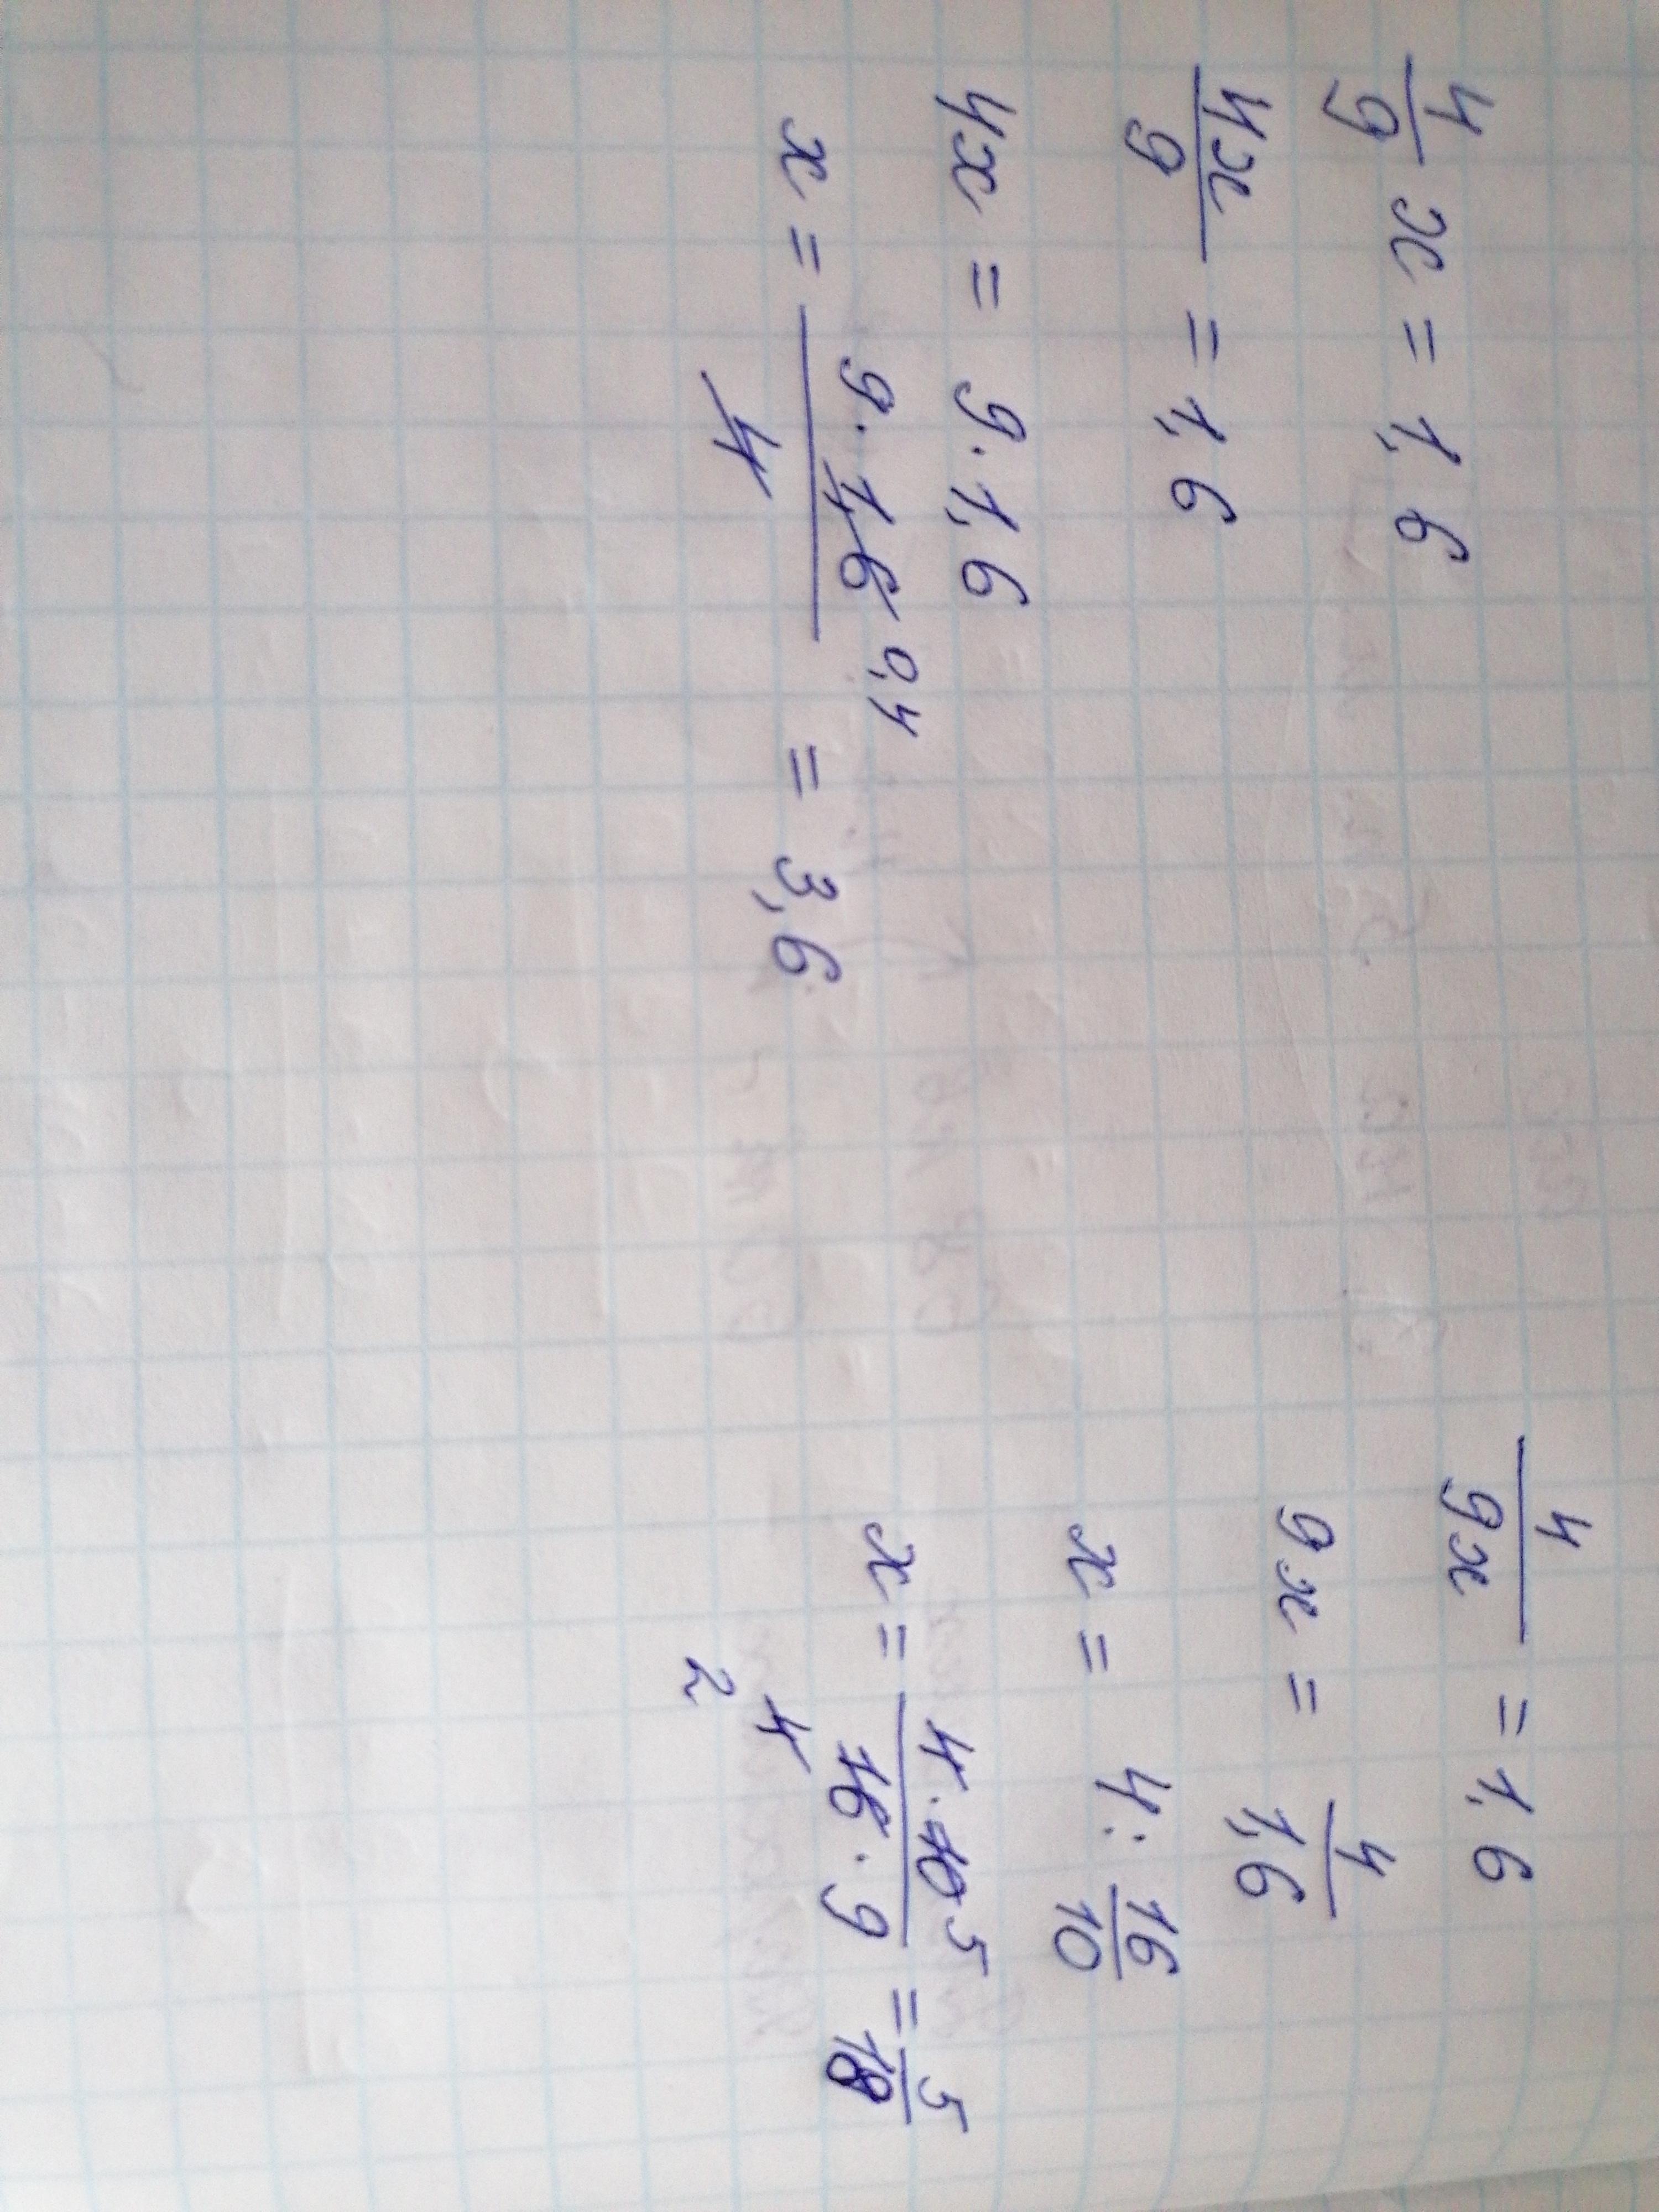 4/9 x = 1,6
4x/9 = 1,6
4x = 9 · 1,6
x = 9 · 1,6 0,4 / 4 = 3,6
4/9x = 1,6
9x = 4/1,6
x = 4 : 16/10
x = 4 · 10 5 / 16 · 9 = 5/18
4
2